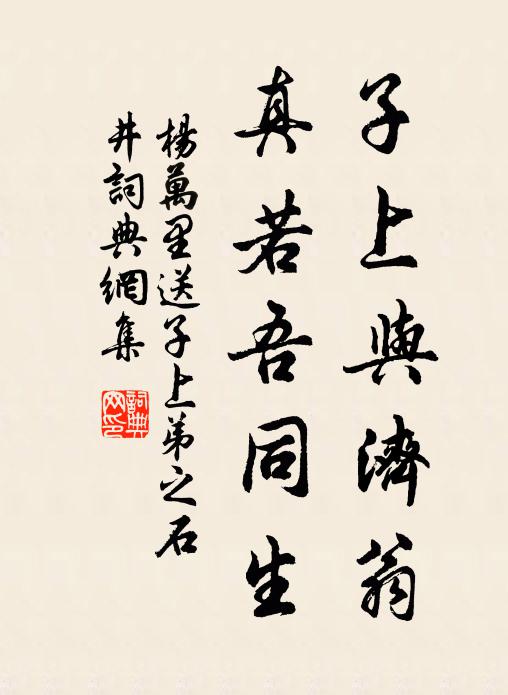 子上與濟翁
真若吾同生
楊萬里送子上弟之石
井詞典網集
詞典
网印